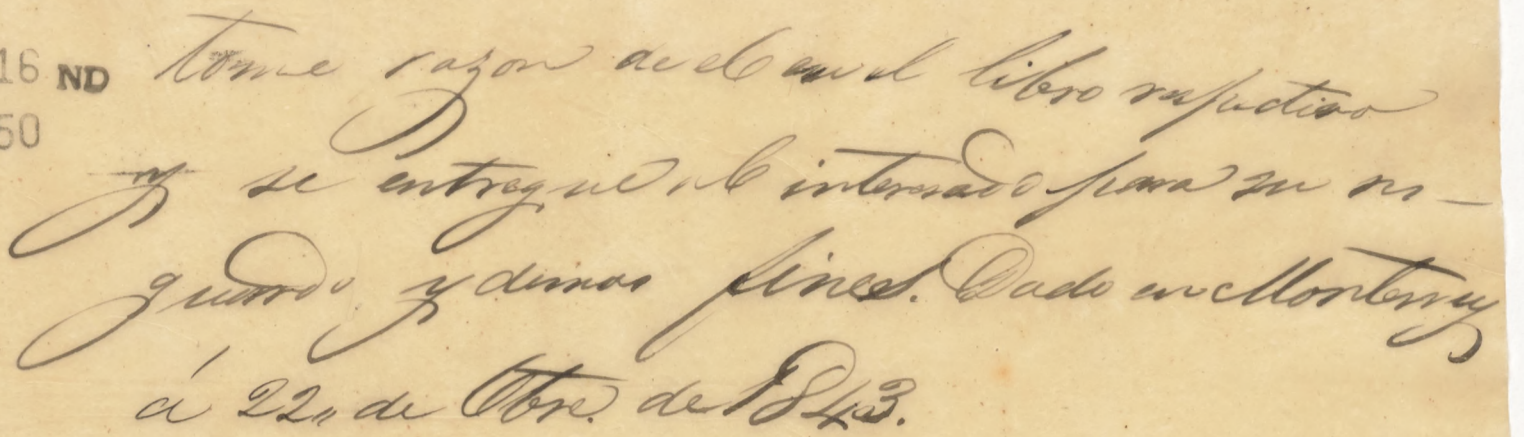 16 ND tome razon de el en el libro respectivo
50
y se entregue al interesado para su res-
guardo y demas fines. Dado en Monterrey
á 22,, de Obre. de 1843.